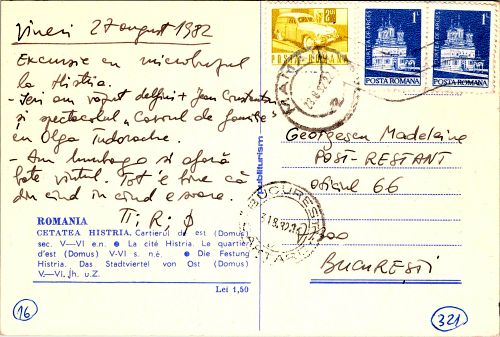 Vineri 27 august 1982
Excursie cu microbuzul
la Histria.
- Ieri am văzut delfini + Jean Constantin
și spectacolul "Covorul de
cu Olga Tudorache.
- Am lumbago și afară
bate vîntul. Tot e bine că
din cînd în cînd e soare.
ROMANIA
CETATEA HISTRIA. Cartierul de est (Domus)
sec. V—VI e.n. ● La cité Histria. Le quartier
d'est (Domus) V-VI s. n.è. ● Die Festung
Histria. Das Stadtviertel von Ost (Domus)
V.—VI. Jh. u.Z.
Lei 1,50
16
publiturism
POSTA ROMANA
1L
POSTA ROMANA
1L
POSTA ROMANA
Georgescu Madeleine
POST-RESTANT
oficiul 66
BUCURESTI
BUCURESTI
321